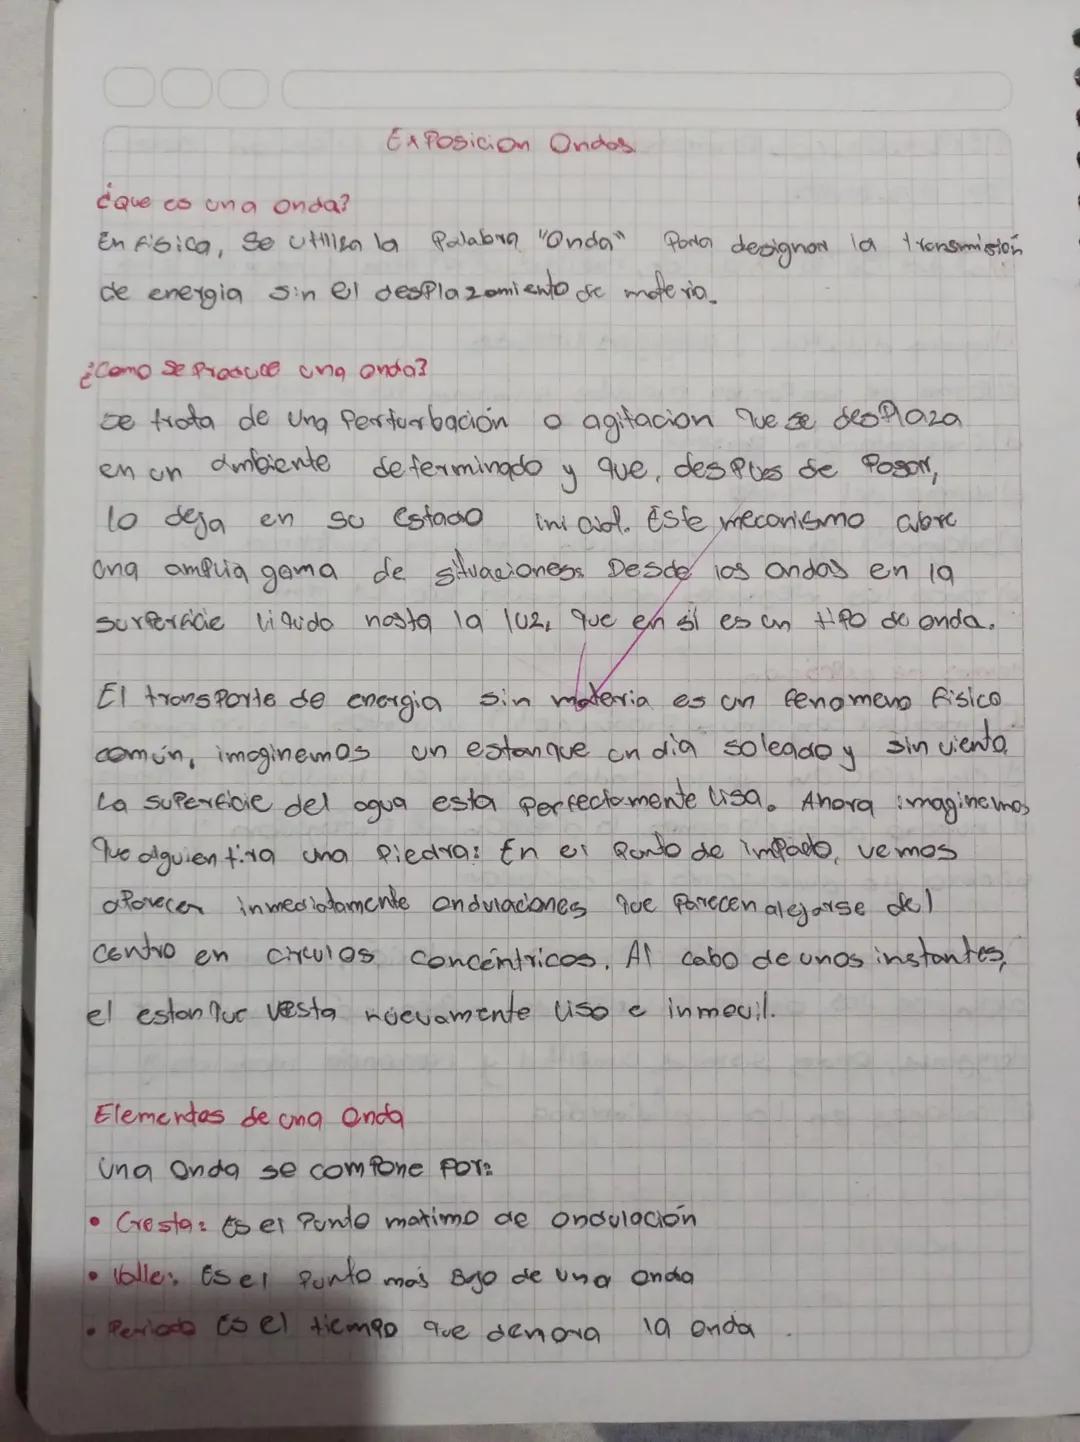 Exposicion Ondas
¿Que es una onda?
En Fisica, se utiliza la Palabra "Onda" Para designar la transmisión
de energia sin el desplazamiento de materia.
¿Como se Produce una onda?
se trata de una Perturbación o agitacion que se desplaza
en un ambiente determinado y que, despues de Pasar,
lo deja en su estado inicial. Este mecanismo abre
una amplia gama de situaciones. Desde las ondas en la
surperficie liquido hasta la luz, que en si es un tipo de onda.
El transporte de energia sin materia es un fenomeno Fisico
común, imaginemos un estanque un dia soleado y sin viento
La superficie del agua esta perfectamente lisa. Ahora imaginemos
que alguien tira una Piedra: En el Punto de impacto, vemos
aparecer inmediatamente ondulaciones que parecen alejarse del
centro en circulos concéntricos. Al cabo de unos instantes,
el estanque esta nuevamente liso e inmovil.
Elementos de una Onda
Una Onda se compone por:
• Cresta: Es el Punto maximo de ondulación
• Valle: Es el Punto más Bajo de una onda
• Periodo Es el tiempo que denora la onda.